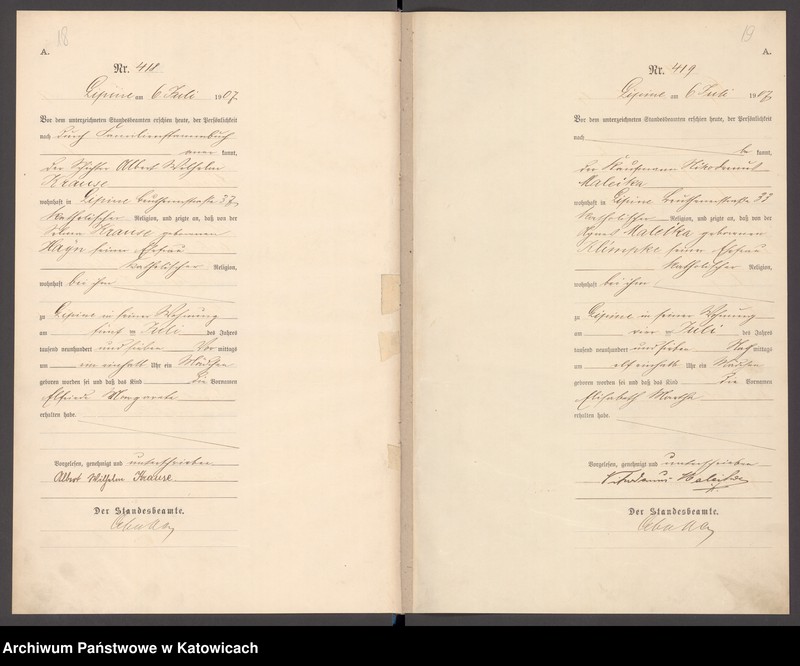 18
A.
Nr. 418
Lipine am 6 Juli 1907.
Vor dem unterzeichneten Standesbeamten erschien heute, der Persönlichkeit
nach durch Familienstammbuch
kannt,
der Albert Wilhelm
Krause
wohnhaft in Lipine Beuthenerstraße 37
katholischer Religion, und zeigte an, daß von der
Krause geborenen
Hayn seiner Ehefrau
katholischer Religion,
wohnhaft bei ihm
zu Lipine in seiner Wohnung
am fünf ten Juli des Jahres
tausend neunhundert und sieben Vor mittags
um ein einhalb Uhr ein Mädchen
geboren worden sei und daß das Kind die Vornamen
Elfriede Margarete
erhalten habe.
Vorgelesen, genehmigt und unterschrieben
Albert Wilhelm Krause.
Der Standesbeamte.
19
A.
Nr. 419
Lipine am 6 Juli 1907
Vor dem unterzeichneten Standesbeamten erschien heute, der Persönlichkeit
nach
be kannt,
der Kaufmann Nikodemus
Maleika
wohnhaft in Lipine Beuthenerstraße 33
katholischer Religion, und zeigte an, daß von der
Agnes Maleika geborenen
Klimpke seiner Ehefrau
katholischer Religion,
wohnhaft bei ihm
zu Lipine in seiner Wohnung
am vier ten Juli des Jahres
tausend neunhundert und sieben Nach mittags
um elf einhalb Uhr ein Mädchen
geboren worden sei und daß das Kind die Vornamen
Elisabeth Martha
erhalten habe.
Vorgelesen, genehmigt und unterschrieben
Nikodemus Maleika
Der Standesbeamte.
Archiwum Państwowe w Katowicach